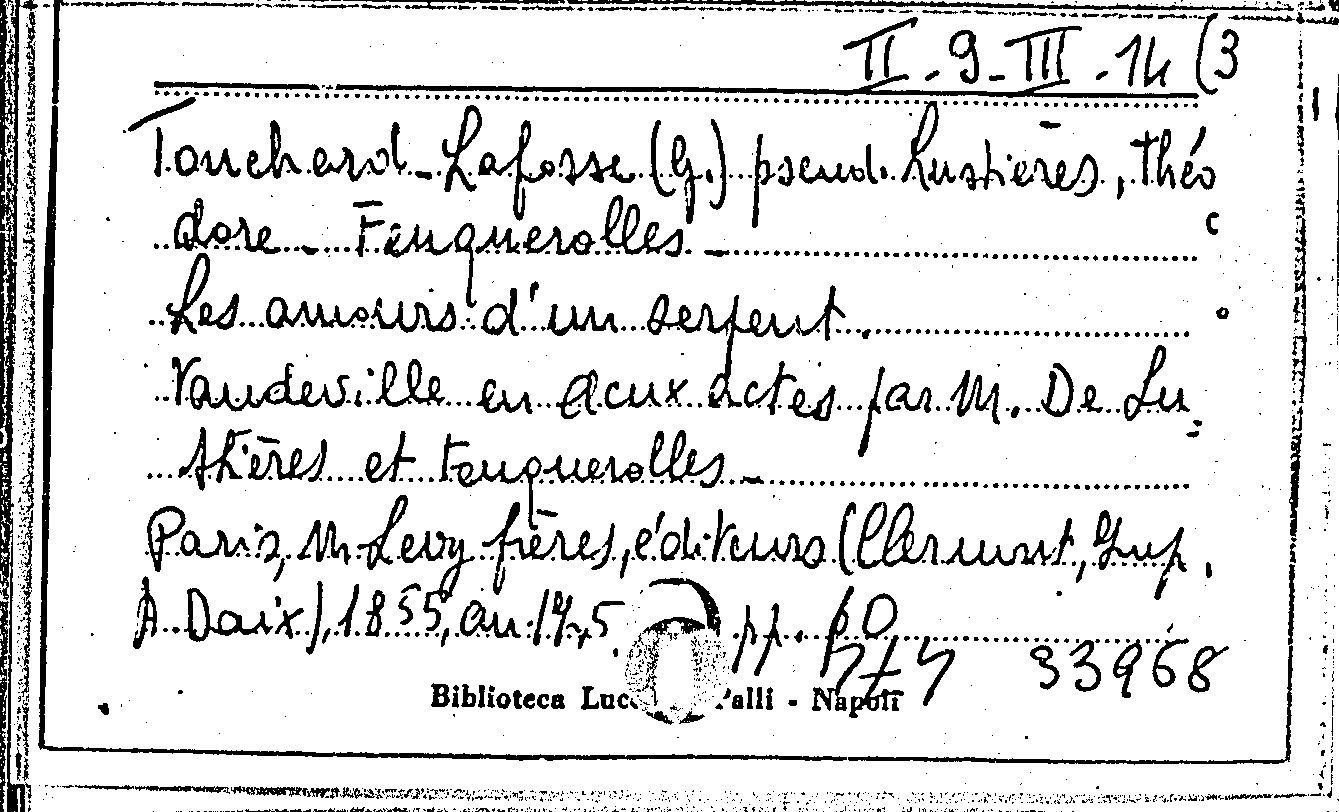 II-9-III-14 (3
Touchard-Lafosse (G.) pseud. Lustières, Théo
dore - Feuquerolles -
Les amours d'un serpent.
Vaudeville en deux actes par M. De Lu=
stières et Feuquerolles -
Paris, M. Levy frères, éditeurs (Clermont, Imp.
A. Daix), 1855, cm. 17,5 pp. 60
33968
Biblioteca Luc Palli - Napoli